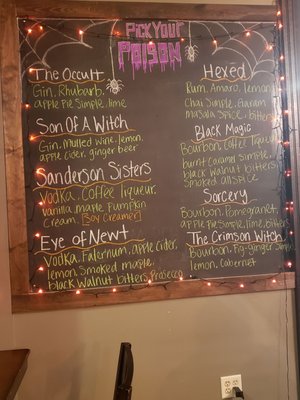 Pick Your
Poison
The Occult
Gin, Rhubarb,
apple Pie Simple, lime
Son Of A Witch
Gin, Mulled wine, lemon,
apple cider, ginger beer
Sanderson Sisters
Vodka, Coffee liqueur,
vanilla, maple, Pumpkin
Cream. [Soy Creamer]
Eye of Newt
Vodka, Falernum, apple Cider,
lemon, Smoked maple,
black Walnut bitters, Prosecco
Hexed
Rum, Amaro, lemon
Chai Simple, Garam
masala Spice, bitters
Black Magic
Bourbon, Coffee liqueur,
burnt Caramel Simple,
black walnut bitters,
Smoked allspice
Sorcery
Bourbon, Pomegranate,
apple Pie Simple, lime, bitters
The Crimson Witch
Bourbon, Fig-Ginger Simple,
lemon, Cabernet